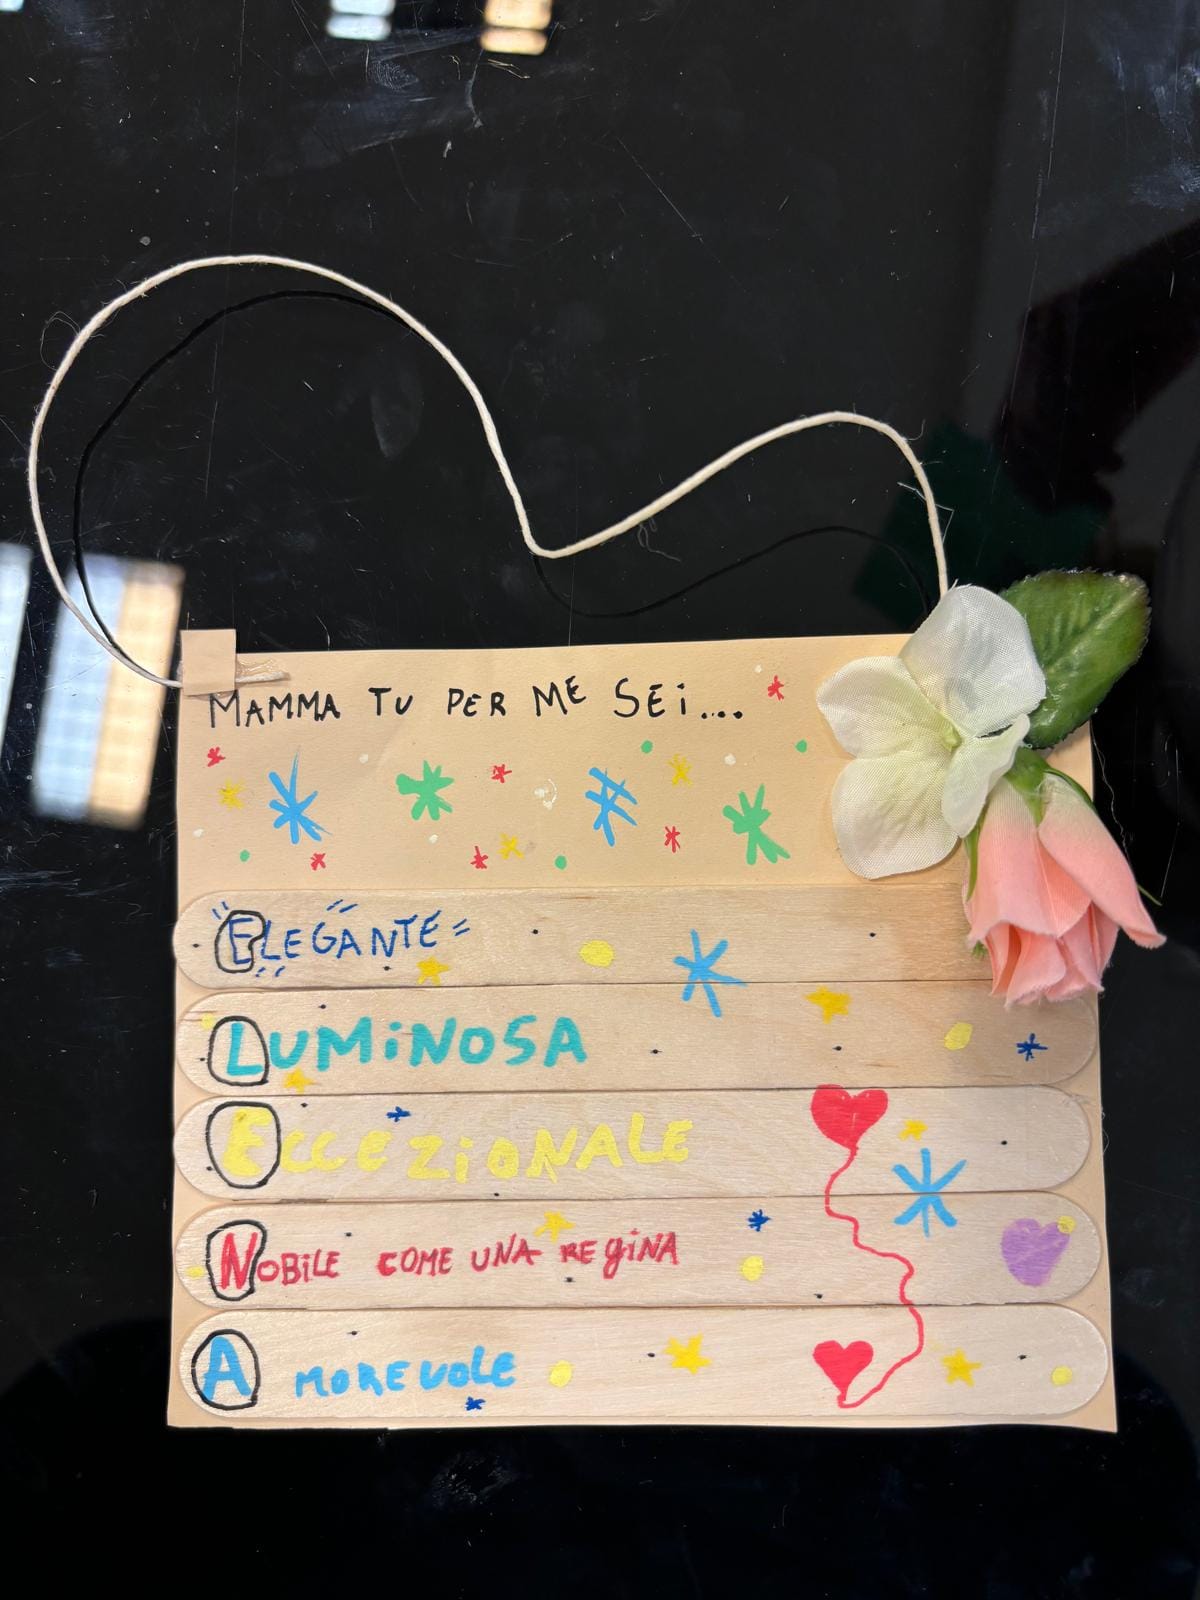 MAMMA TU PER ME SEi...
ELEGANTE
LUMiNOSA
ECCEZiONALE
NOBiLE COME UNA REgiNA
AMOREVOLE